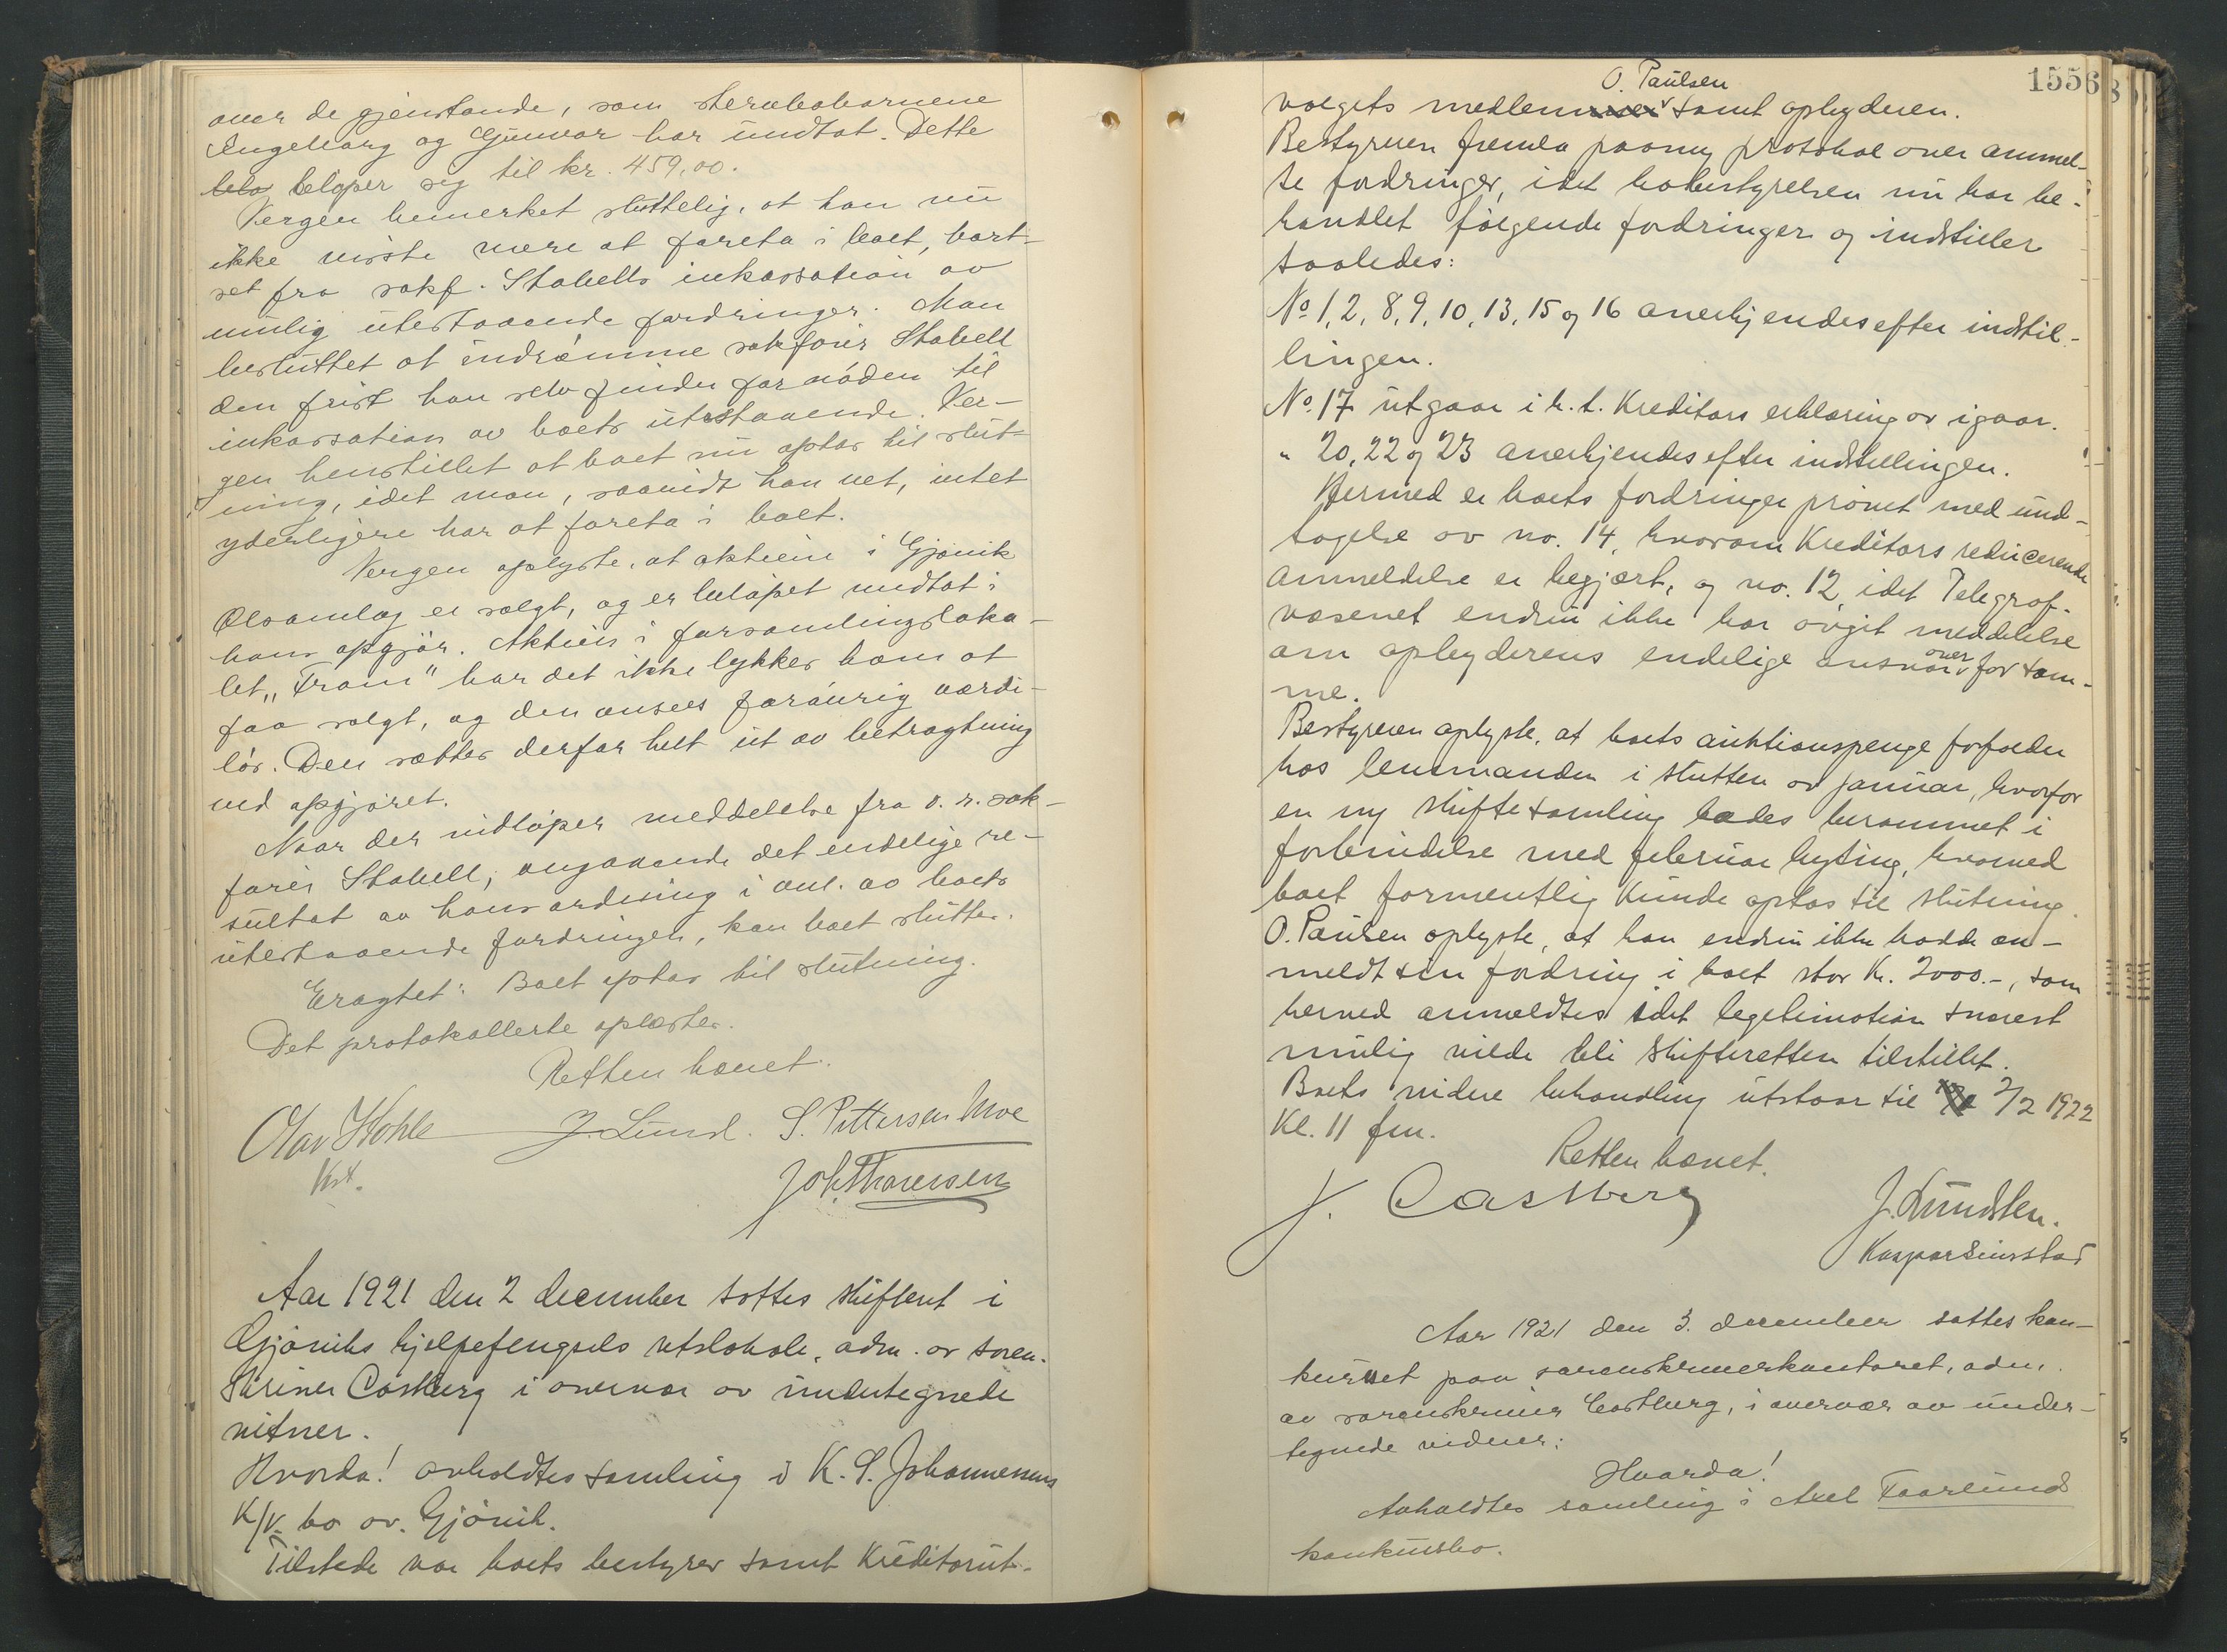 over de gjenstande, som stervbobarnene
Ingeborg og Gunvor har undtat. Dette
belø beløper seg til kr. 459,00.
Vergen bemerket sluttelig, at han nu
ikke visste mere at foreta i boet, bort-
set fra sakf. Stabells inkassation av
mulig utestaaende fordringer. Man
besluttet at indrømme sakfører Stabell
den frist han selv finder fornøden til
inkassation av boets utestaaende. Ver-
gen henstillet at boet nu optas til slut-
ning, idet man, saavidt han vet, intet
yderligere har at foreta i boet.
Vergen oplyste, at aktien i Gjøvik
Ølsamlag er solgt, og er beløpet medtat i
hans opgjør. Aktien i forsamlingsloka-
let „Fram" har det ikke lykkes ham at
faa solgt, og den ansees forøvrig værdi-
løs. Den sættes derfor helt ut av betragtning
ved opgjøret.
Naar der indløper meddelelse fra o. r. sak-
fører Stabell, angaaende det endelige re-
sultat av hans ordning i anl. av boets
utestaaende fordringer, kan boet sluttes.
Eragtet: Boet optas til slutning.
Det protokollerte oplæstes.
Retten hævet.
Olav Kohle J. Lund. S. Pettersen Moe
Kst. Joh Thoresen
Aar 1921 den 2 december sattes skifteret i
Gjøviks hjelpefengsels retslokale, adm. av soren-
skriver Castberg i overvær av undertegnede
vitner.
Hvorda! avholdtes samling i K. S. Johannessens
K/k. bo av Gjøvik.
Tilstede var boets bestyrer samt Kreditorut-
1556
O. Paulsen
valgets medlemmer samt opbyderen.
Bestyreren fremla paany protokol over anmel-
te fordringer, idet bobestyrelsen nu har be-
handlet følgende fordringer og indstiller
saaledes:
No 1, 2, 8, 9, 10, 13, 15 og 16 anerkjendes efter indstil-
lingen.
No. 17 utgaar i h. t. Kreditors erklæring av igaar.
" 20, 22 og 23 anerkjendes efter indstillingen.
Hermed er boets fordringer prøvet med und-
tagelse av no. 14, hvorom Kreditors reducerende
anmeldelse er begjært, og no. 12, idet Telegraf-
væsenet endnu ikke har avgit meddelelse
om opbyderens endelige ansvar over for sam-
me.
Bestyreren oplyste, at boets auktionspenge forfalder
hos lensmanden i slutten av januar, hvorfor
en ny skiftesamling bades berammet i
forbindelse med februar byting, hvormed
boet formentlig kunde optas til slutning.
O. Paulsen oplyste, at han endnu ikke hadde an-
meldt sin fordring i boet stor Kr. 2000.-, som
herved anmeldtes idet legitimation snarest
mulig vilde bli skifteretten tilstillet.
Boets videre behandling utstaar til 2/2 1922
Kl. 11 fm.
Retten hævet.
J. Castberg J. Lundsten.
Kaspar Seirstad
Aar 1921 den 3. december sattes kon-
kursret paa sorenskriverkontoret, adm.
av sorenskriver Castberg, i overvær av under-
tegnede vidner:
Hvorda!
Avholdtes samling i Axel Faarlunds
konkursbo.